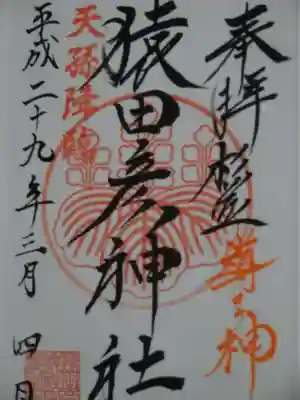 奉拝 杉並
導の神
猿田彦神社
天孫降臨
平成二十九年三月四日